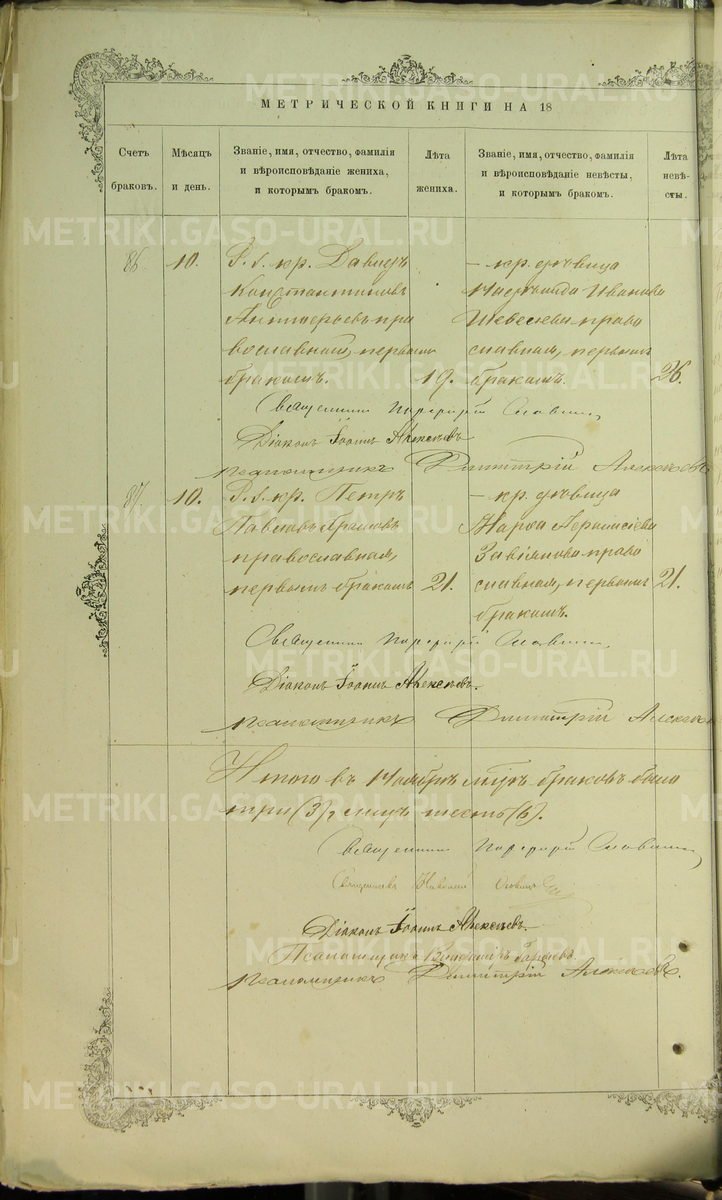 МЕТРИЧЕСКОЙ КНИГИ НА 18
Счетъ браковъ.
Мѣсяцъ и день.
Званіе, имя, отчество, фамилія и вѣроисповѣданіе жениха, и которымъ бракомъ.
Лѣта жениха.
Званіе, имя, отчество, фамилія и вѣроисповѣданіе невѣсты, и которымъ бракомъ.
Лѣта невѣ-сты.
86. 10. кр. Давидъ
Константиновъ
пра
вославный, первымъ
бракомъ. 19.
— кр. дѣвица
Иванова
право
славная, первымъ
бракомъ. 26.
Священникъ Порфирій Славнинъ
Діаконъ Іоаннъ Алексѣевъ
Псаломщикъ Димитрій Алексѣевъ
87. 10. кр. Петръ
Павловъ
православный,
первымъ бракомъ 21.
— кр. дѣвица
Марѳа
право
славная, первымъ 21.
бракомъ.
Священникъ Порфирій Славнинъ
Діаконъ Іоаннъ Алексѣевъ.
Псаломщикъ Димитрій Алексѣевъ
Итого въ Ноябрѣ м-цѣ браковъ было
три (3), лицъ шесть (6).
Священникъ Порфирій Славнинъ
Священникъ
Діаконъ Іоаннъ Алексѣевъ.
Псаломщикъ
Псаломщикъ Димитрій Алексѣевъ.
METRIKI.GASO-URAL.RU